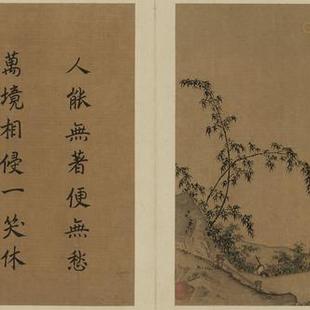 人能無著便無愁
萬境相侵一笑休